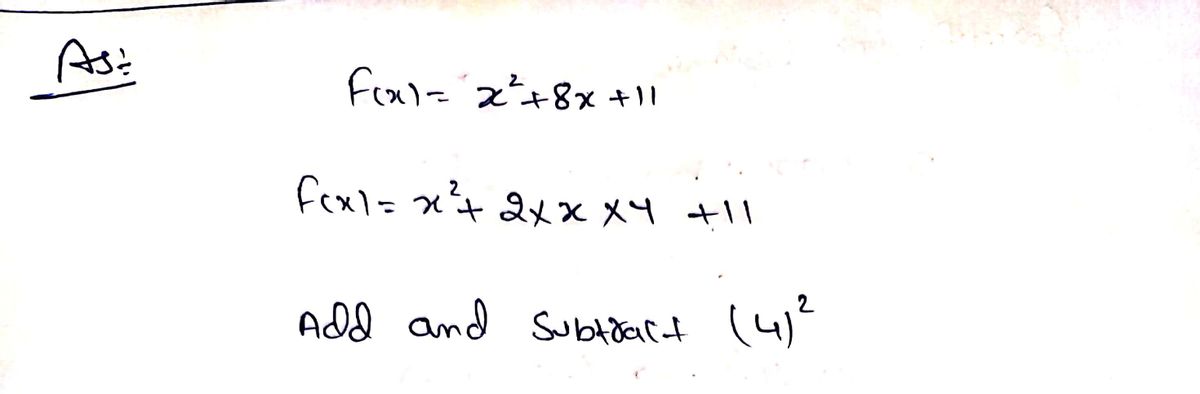 As:
f(x) = x²+8x+11
f(x) = x²+ 2×x×4 +11
Add and Subtract (4)²